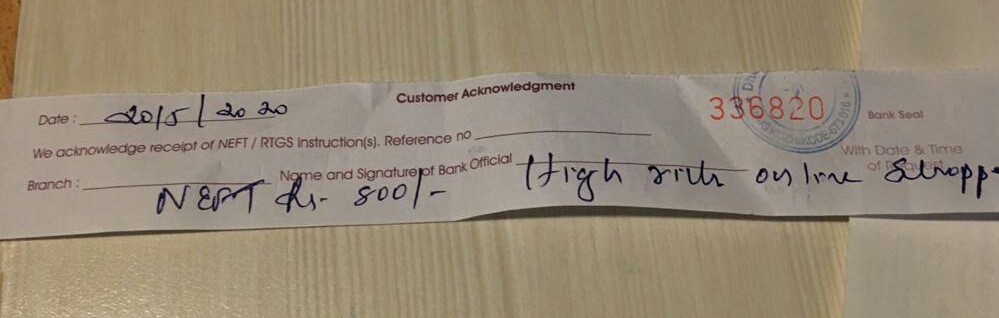 Customer Acknowledgment
Date : 20/5/2020
336820
Bank Seal
We acknowledge receipt of NEFT / RTGS instruction(s). Reference no
With Date & Time
of Request
Branch : Name and Signature of Bank Official
NEFT Rs. 800/- High rich online Shopp